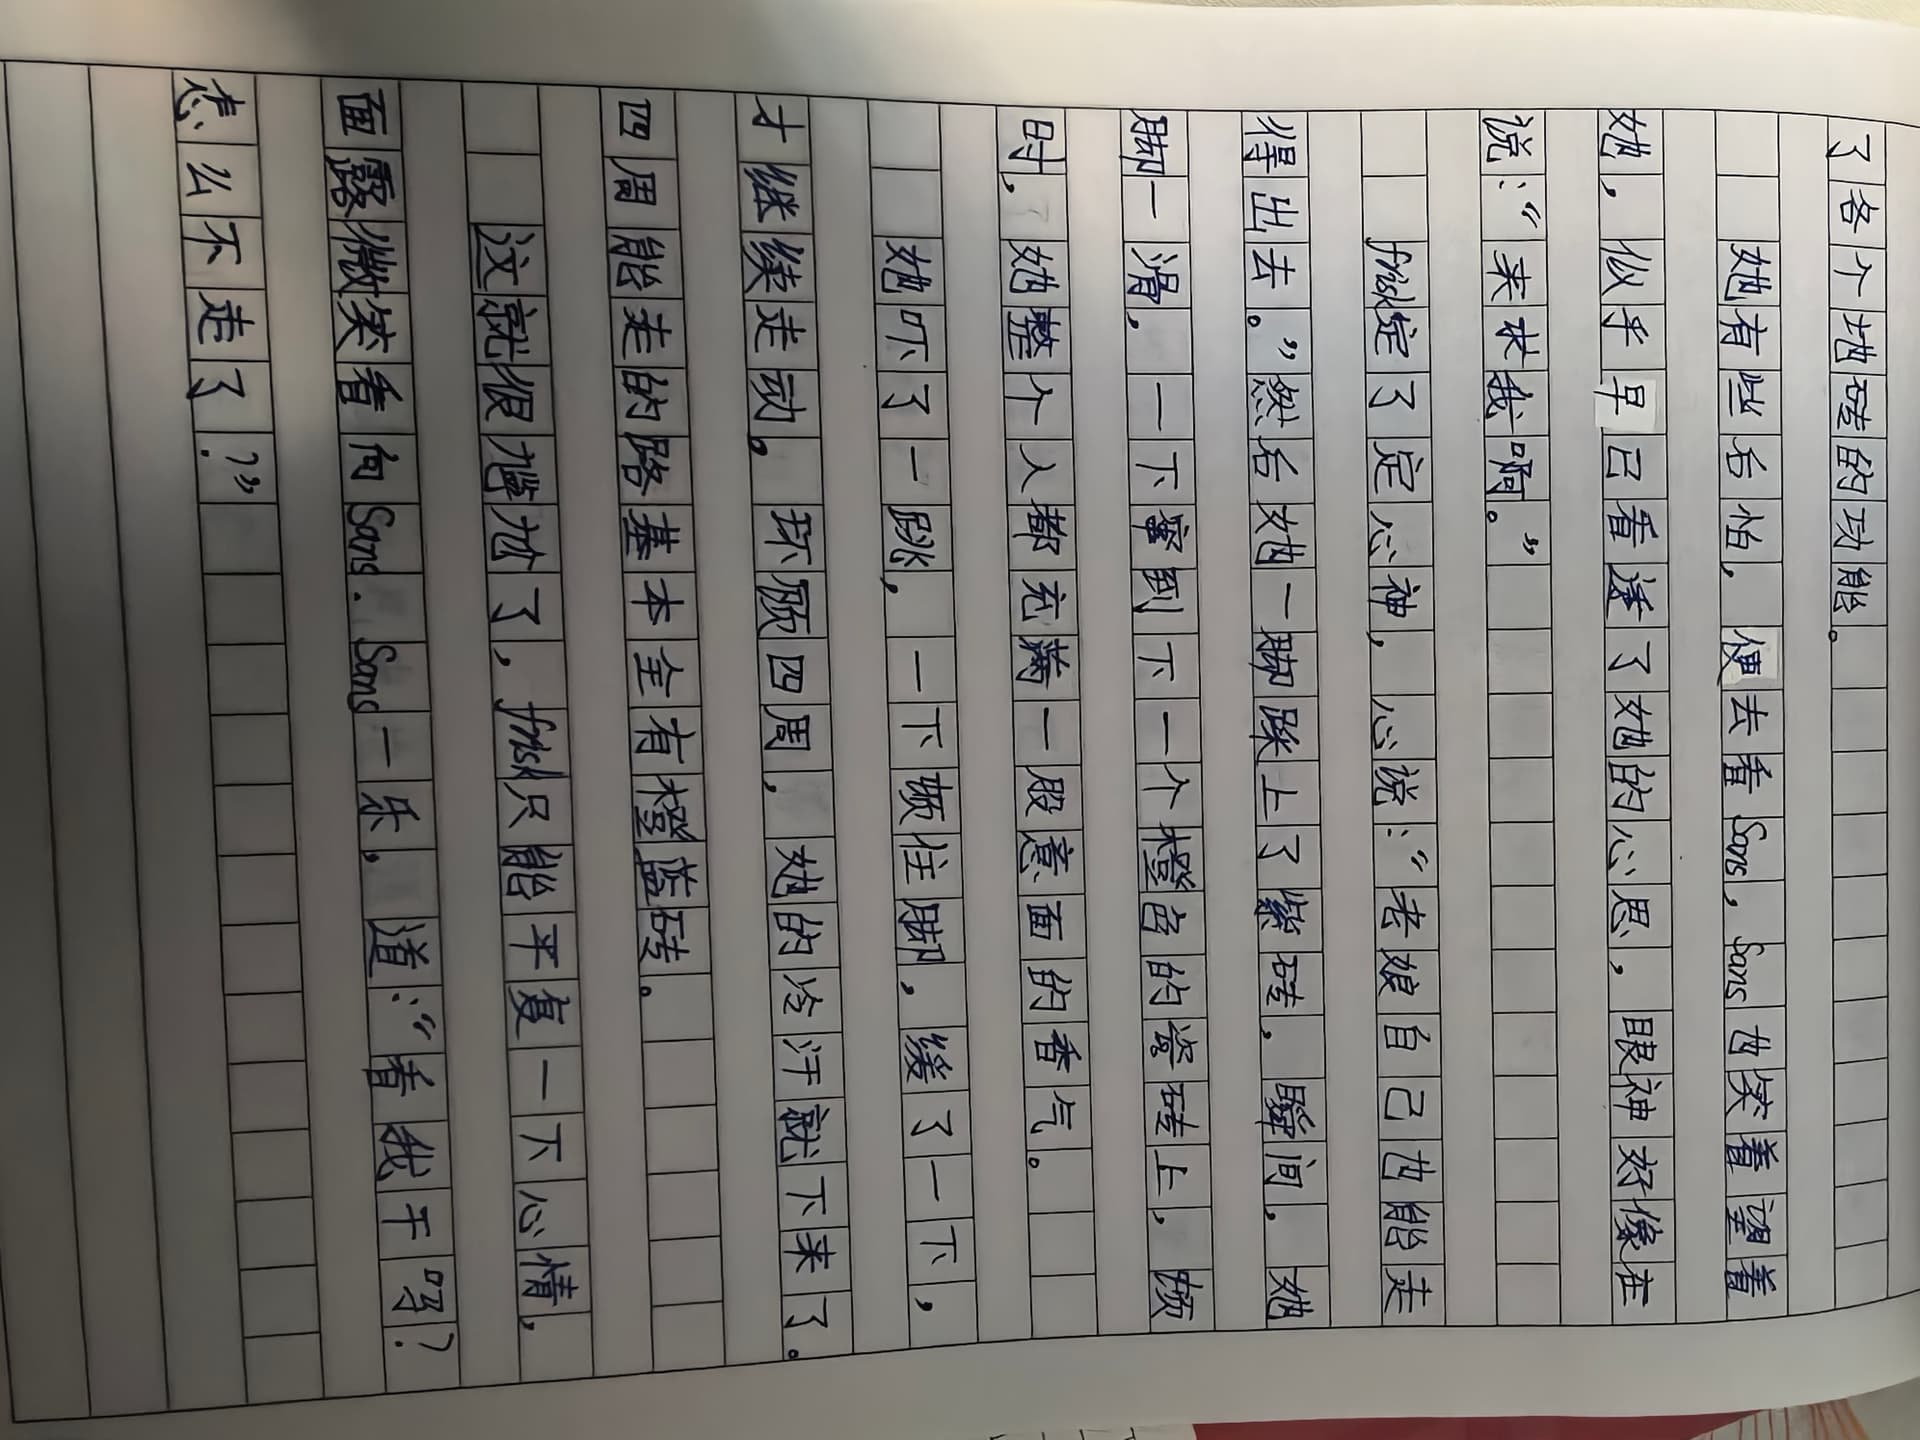 了各个地砖的功能。
她有些后怕，便去看Sans，Sans也笑着望着
她，似乎早已看透了她的心思，眼神好像在
说：“来求我啊。”
frisk定了定心神，心说：“老娘自己也能走
得出去。”然后她一脚踩上了紫砖，瞬间，她
脚一滑，一下窜到下一个橙色的瓷砖上，顿
时，她整个人都充满一股意面的香气。
她吓了一跳，一下顿住脚，缓了一下，
才继续走动。环顾四周，她的冷汗就下来了。
四周能走的路基本全有橙蓝砖。
这就很尴尬了，frisk只能平复一下心情，
面露微笑看向Sans. Sans一乐，道：“看我干吗？
怎么不走了？”